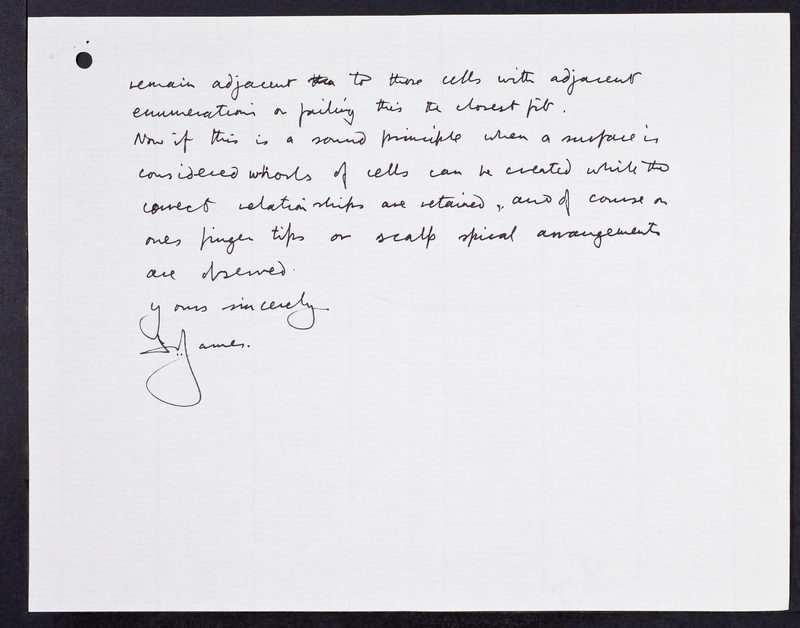 remain adjacent to those cells with adjacent
enumerations or failing this the closest fit.
Now if this is a sound principle when a surface is
considered whorls of cells can be created while the
correct relationships are retained, and of course on
ones finger tips or scalp spiral arrangements
are observed.
Yours sincerely
James.